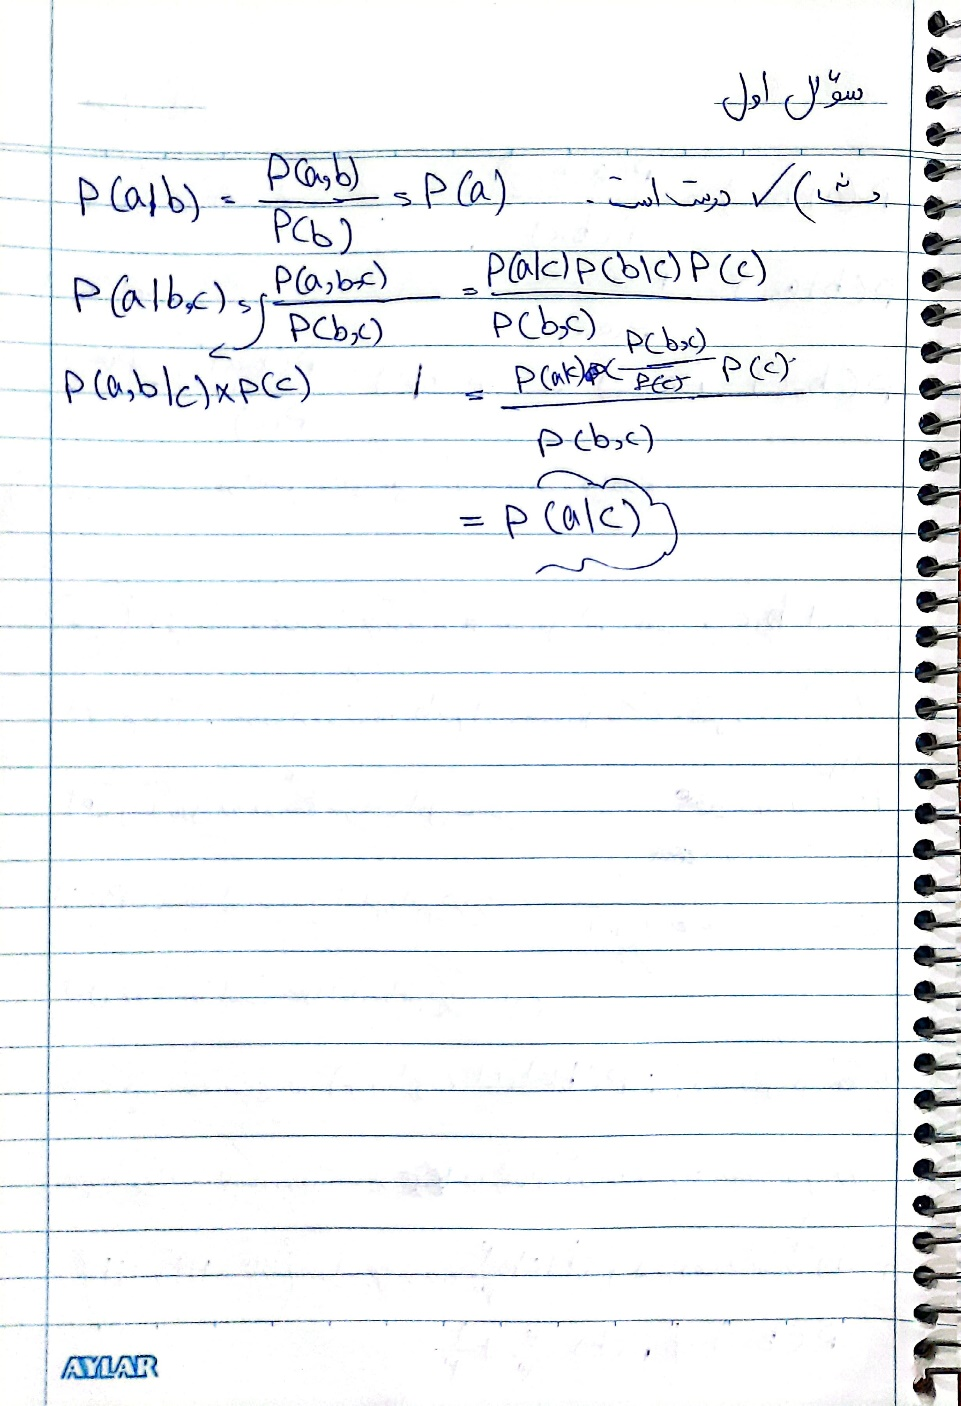 سؤال اول
ث) ✓ درست است. P(a|b) = P(a,b) / P(b) = P(a)
P(a|b,c) = P(a,b,c) / P(b,c) = P(a|c) P(b|c) P(c) / P(b,c)
P(a,b|c) × P(c) = P(a|c) P(b,c) / P(c) P(c) / P(b,c)
= P(a|c)
AYLAR